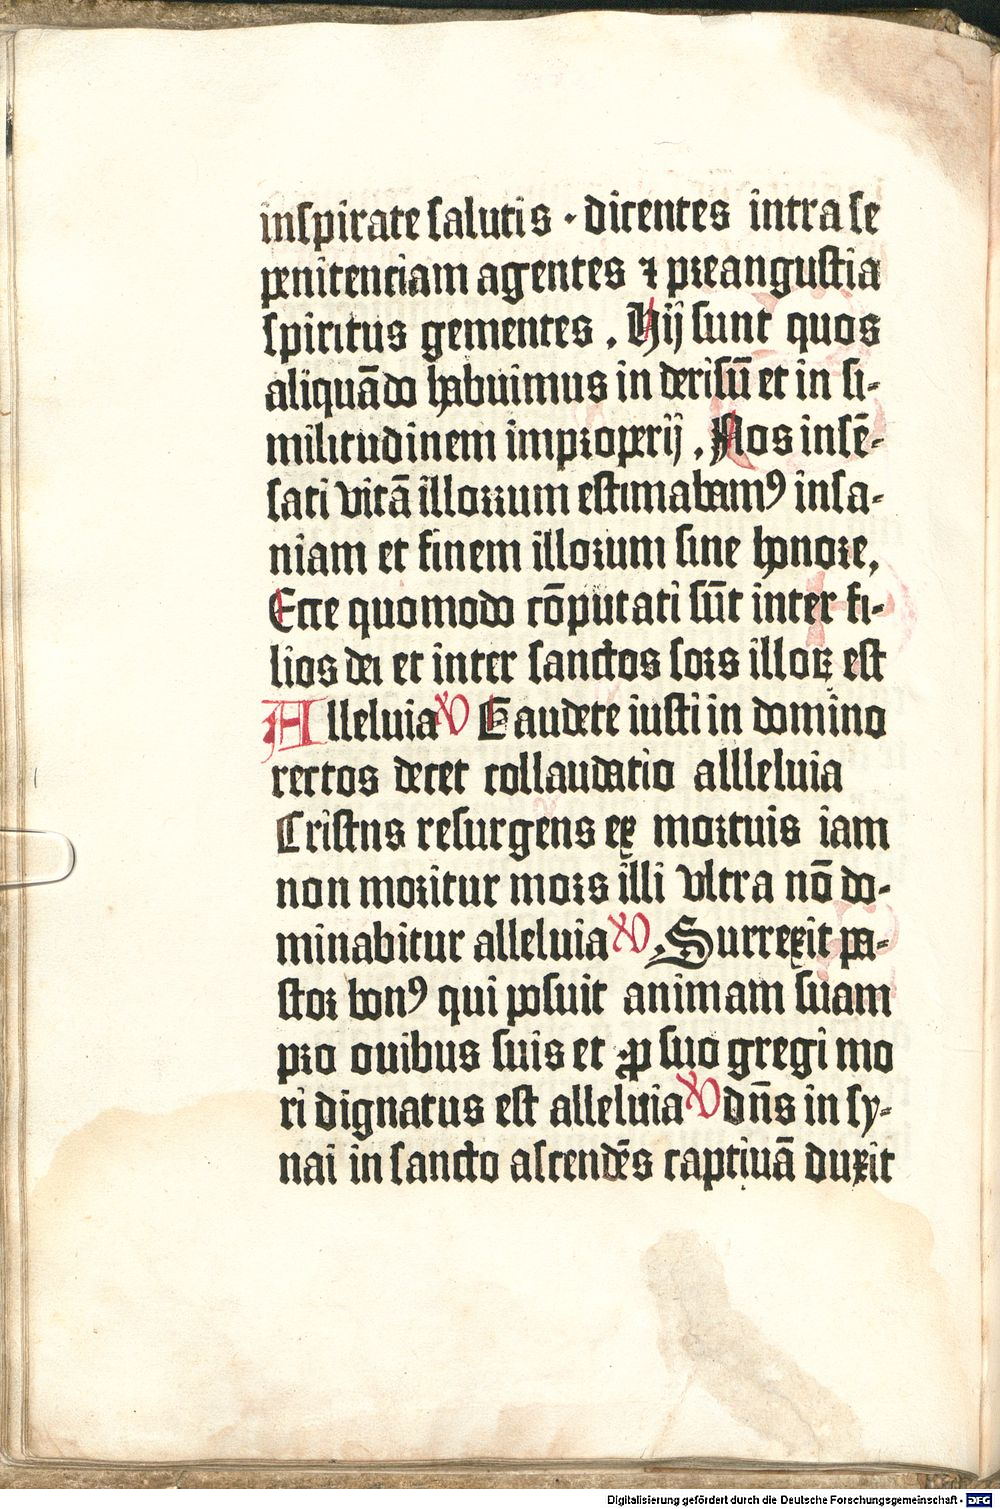 inſpirate ſalutis · dicentes intra ſe
penitenciam agentes ⁊ preanguſtia
ſpiritus gementes . Hij ſunt quos
aliquādo habuimus in deriſū et in ſi-
militudinem improperij . Nos inſē-
ſati vitā illorrum eſtimabamꝰ inſa-
niam et finem illorum ſine honore,
Ecce quomodo cōputati ſūt inter fi-
lios dei et inter ſanctos ſors illoꝝ eſt
Alleluia ꝟ Gaudete iuſti in domino
rectos decet collaudatio allleluia
Criſtus reſurgens ex mortuis iam
non moritur mors illi vltra nō do-
minabitur alleluia ꝟ . Surrexit pa-
ſtor bonꝰ qui poſuit animam ſuam
pro ouibus ſuis et ꝓ ſuo gregi mo
ri dignatus eſt alleluia ꝟ dn̄s in ſy-
nai in ſancto aſcendēs captiuā duxit
Digitalisierung gefördert durch die Deutsche Forschungsgemeinschaft - DFG